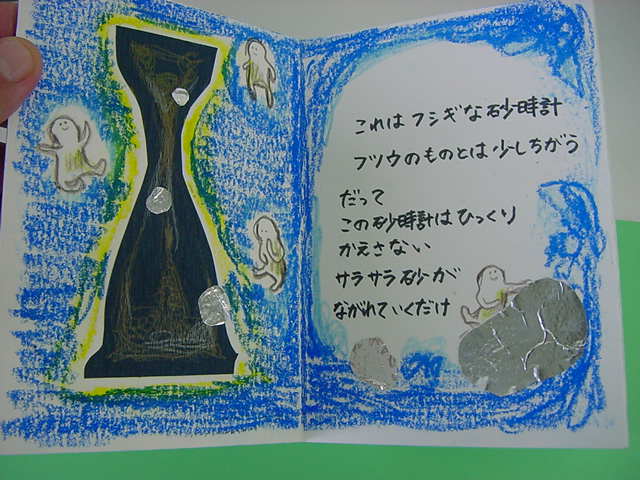 これはフシギな砂時計
フツウのものとは少しちがう
だって
この砂時計はひっくり
かえさない
サラサラ砂が
ながれていくだけ